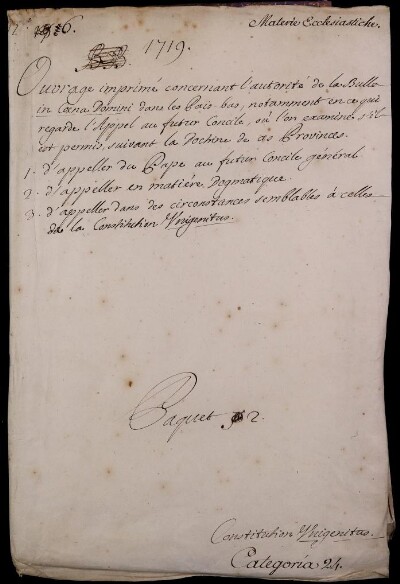 Materie Ecclesiastiche.
1719.
Ouvrage imprimé concernant l'autorité de la Bulle
in Cœna Domini dans les Païs bas, notamment en ce qui
regarde l'Appel au futur Concile, où l'on examine s'il
est permis, suivant la Doctrine de ces Provinces.
1. d'appeller du Pape au futur Concile général
2. d'appeller en matiére Dogmatique.
3. d'appeller dans des circonstances semblables à celles
de la Constitution Unigenitus.
Paquet 2.
Constitution Unigenitus.
Categoria 24.